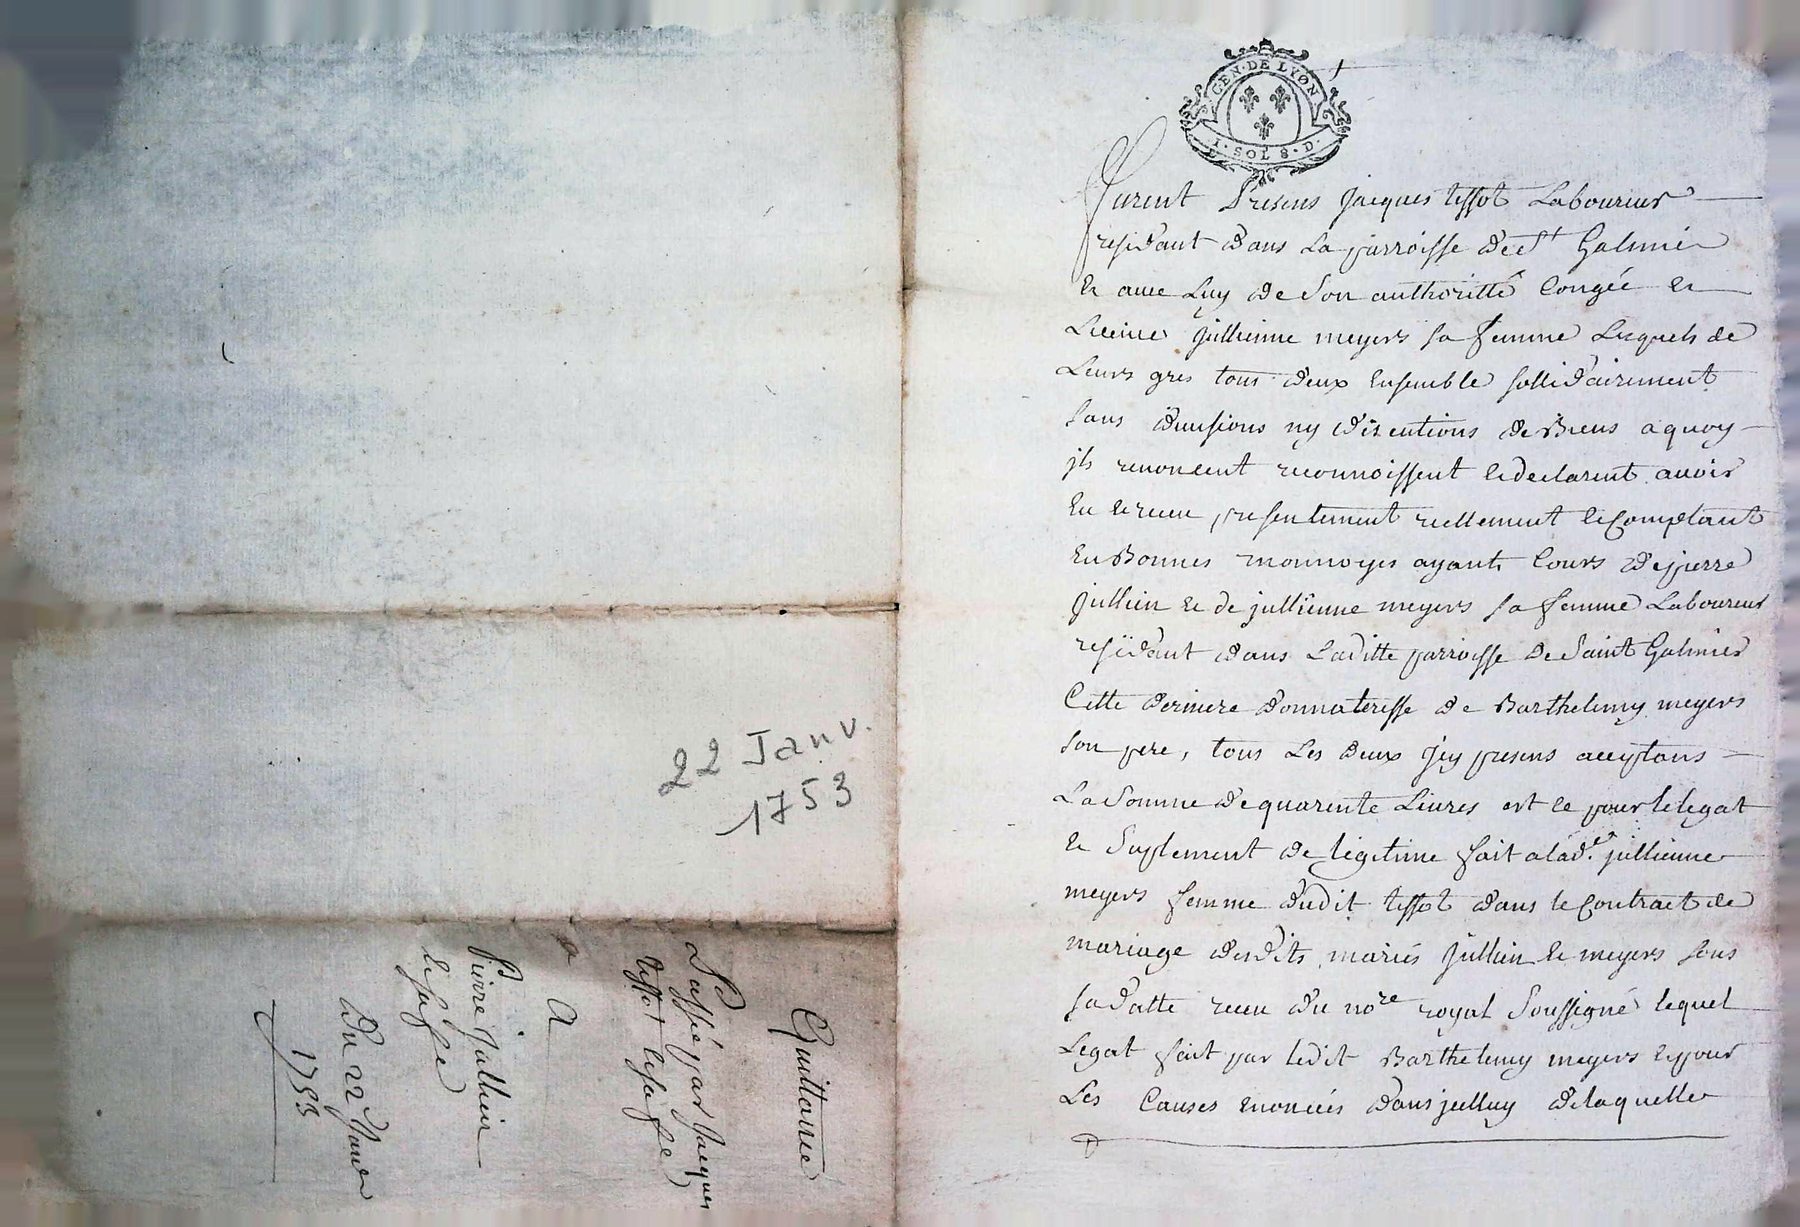 22 Janv.
1753
Quittance
Passé par Jacques
tissot & sa fe
A
Pierre Jullien
& sa fe
Du 22 Janer
1753
GEN·DE LYON
1·SOL 8·D·
furent Presens Jacques tissot Laboureur
residant dans La parroisse de St Galmier
& avec Luy de Son authoritté Congée &
Licence Jullienne meyers sa femme Lesquels de
Leurs gres tous deux Ensemble sollidairement
sans divisions ny discutions de Biens a quoy
ils renoncent reconnoissent & declarent avoir
Eu & receu presentement reellement & Comptant
En Bonnes monnoyes ayant Cours de pierre
Jullien & de jullienne meyers sa femme Laboureur
residant dans Laditte parroisse De Saint Galmier
Cette derniere donnateresse de Barthelemy meyers
son pere, tous Les Deux Jcy presens acceptans
La Somme de quarente Livres est ce pour le legat
& Suplement de legitime fait a lade. jullienne
meyers femme dudit tissot dans le Contract de
mariage desdits mariés Jullien & meyers sous
sa datte receu du nore royal Soussigné lequel
Legat fait par ledit Barthelemy meyers & pour
Les Causes enoncées dans jcelluy de laquelle